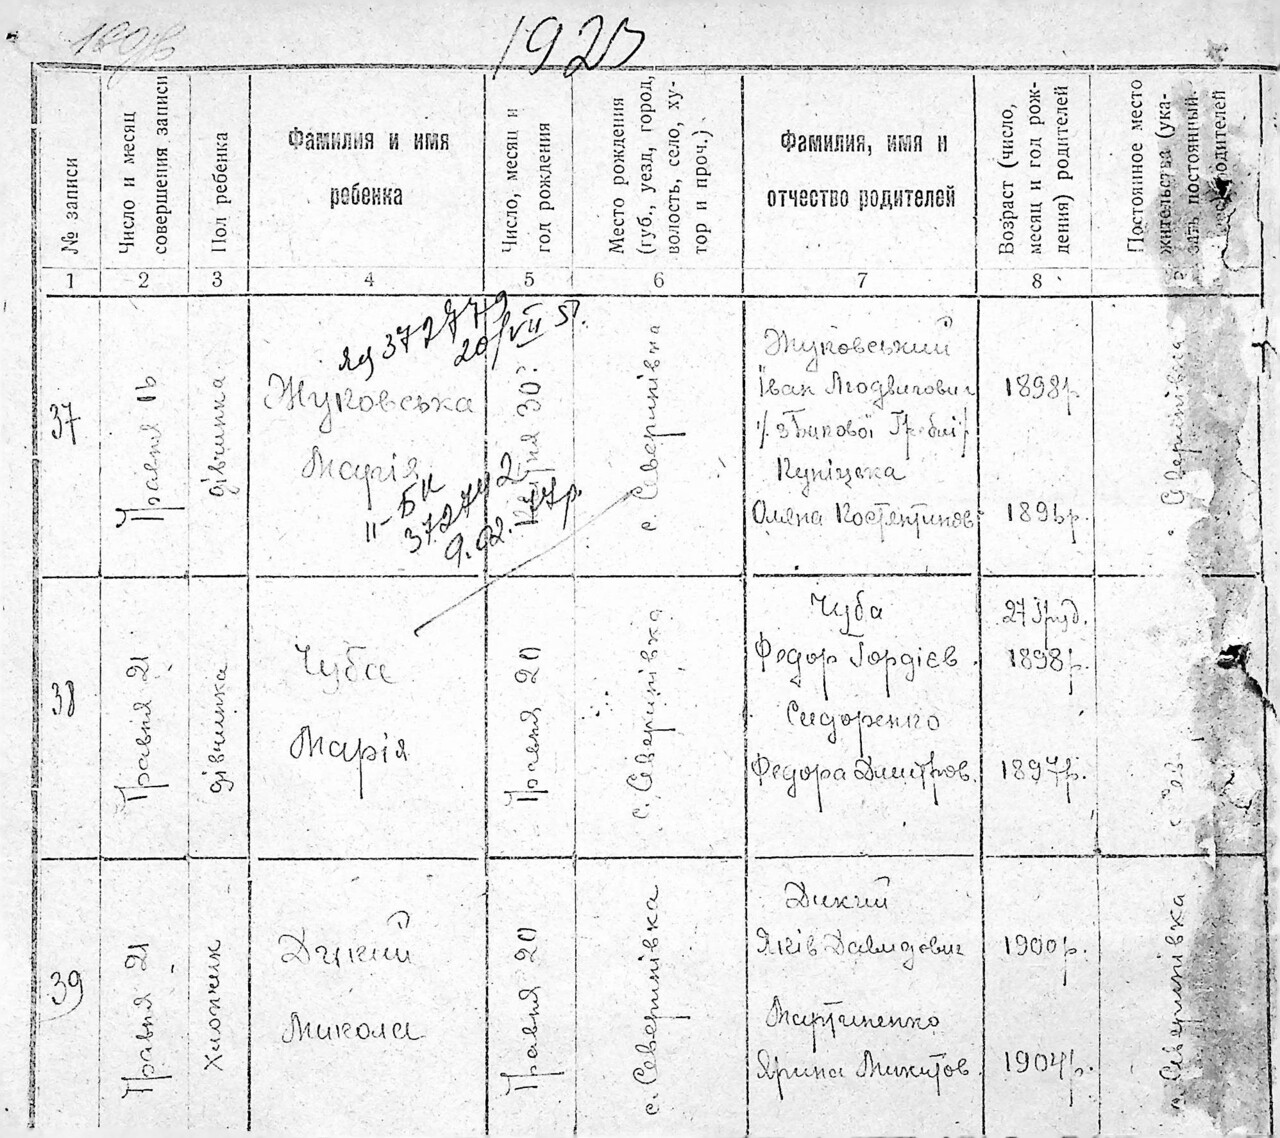 192
№ записи
Число и месяц
совершения записи
Пол ребенка
Фамилия и имя
ребенка
Число, месяц и
год рождения
Место рождения
(губ., уезд, город,
волость, село, ху-
тор и проч.)
Фамилия, имя и
отчество родителей
Возраст (число,
месяц и год рож-
дения) родителей
Постоянное место
жительства (ука-
зать постоянный.
родителей
1
2
3
4
5
6
7
8
37
Травня
дівчинка
372779
20/VII 5
Жуковська
Марія
II-БК
9.02.77р.
30
с. Северинівка
Жуковський
Іван Людвигович
/з Бикової Греблі/
Куніцька
Оляна Костянтинов
1898р.
189 р.
Северинівка
38
Травня 21
дівчинка
Чуба
Марія
Травня 20
с. Северинівка
Чуба
Федор Гордієв.
Сидоренко
Федора Дмитров.
27 Груд.
1898р.
1897р.
с. Сев
39
Травня 21
Хлопчик
Дикий
Микола
Травня 20
с. Северинівка
Дикий
Яків Давидович
Мартиненко
Ярина Микитов.
1900р.
1904р.
с. Северинівка